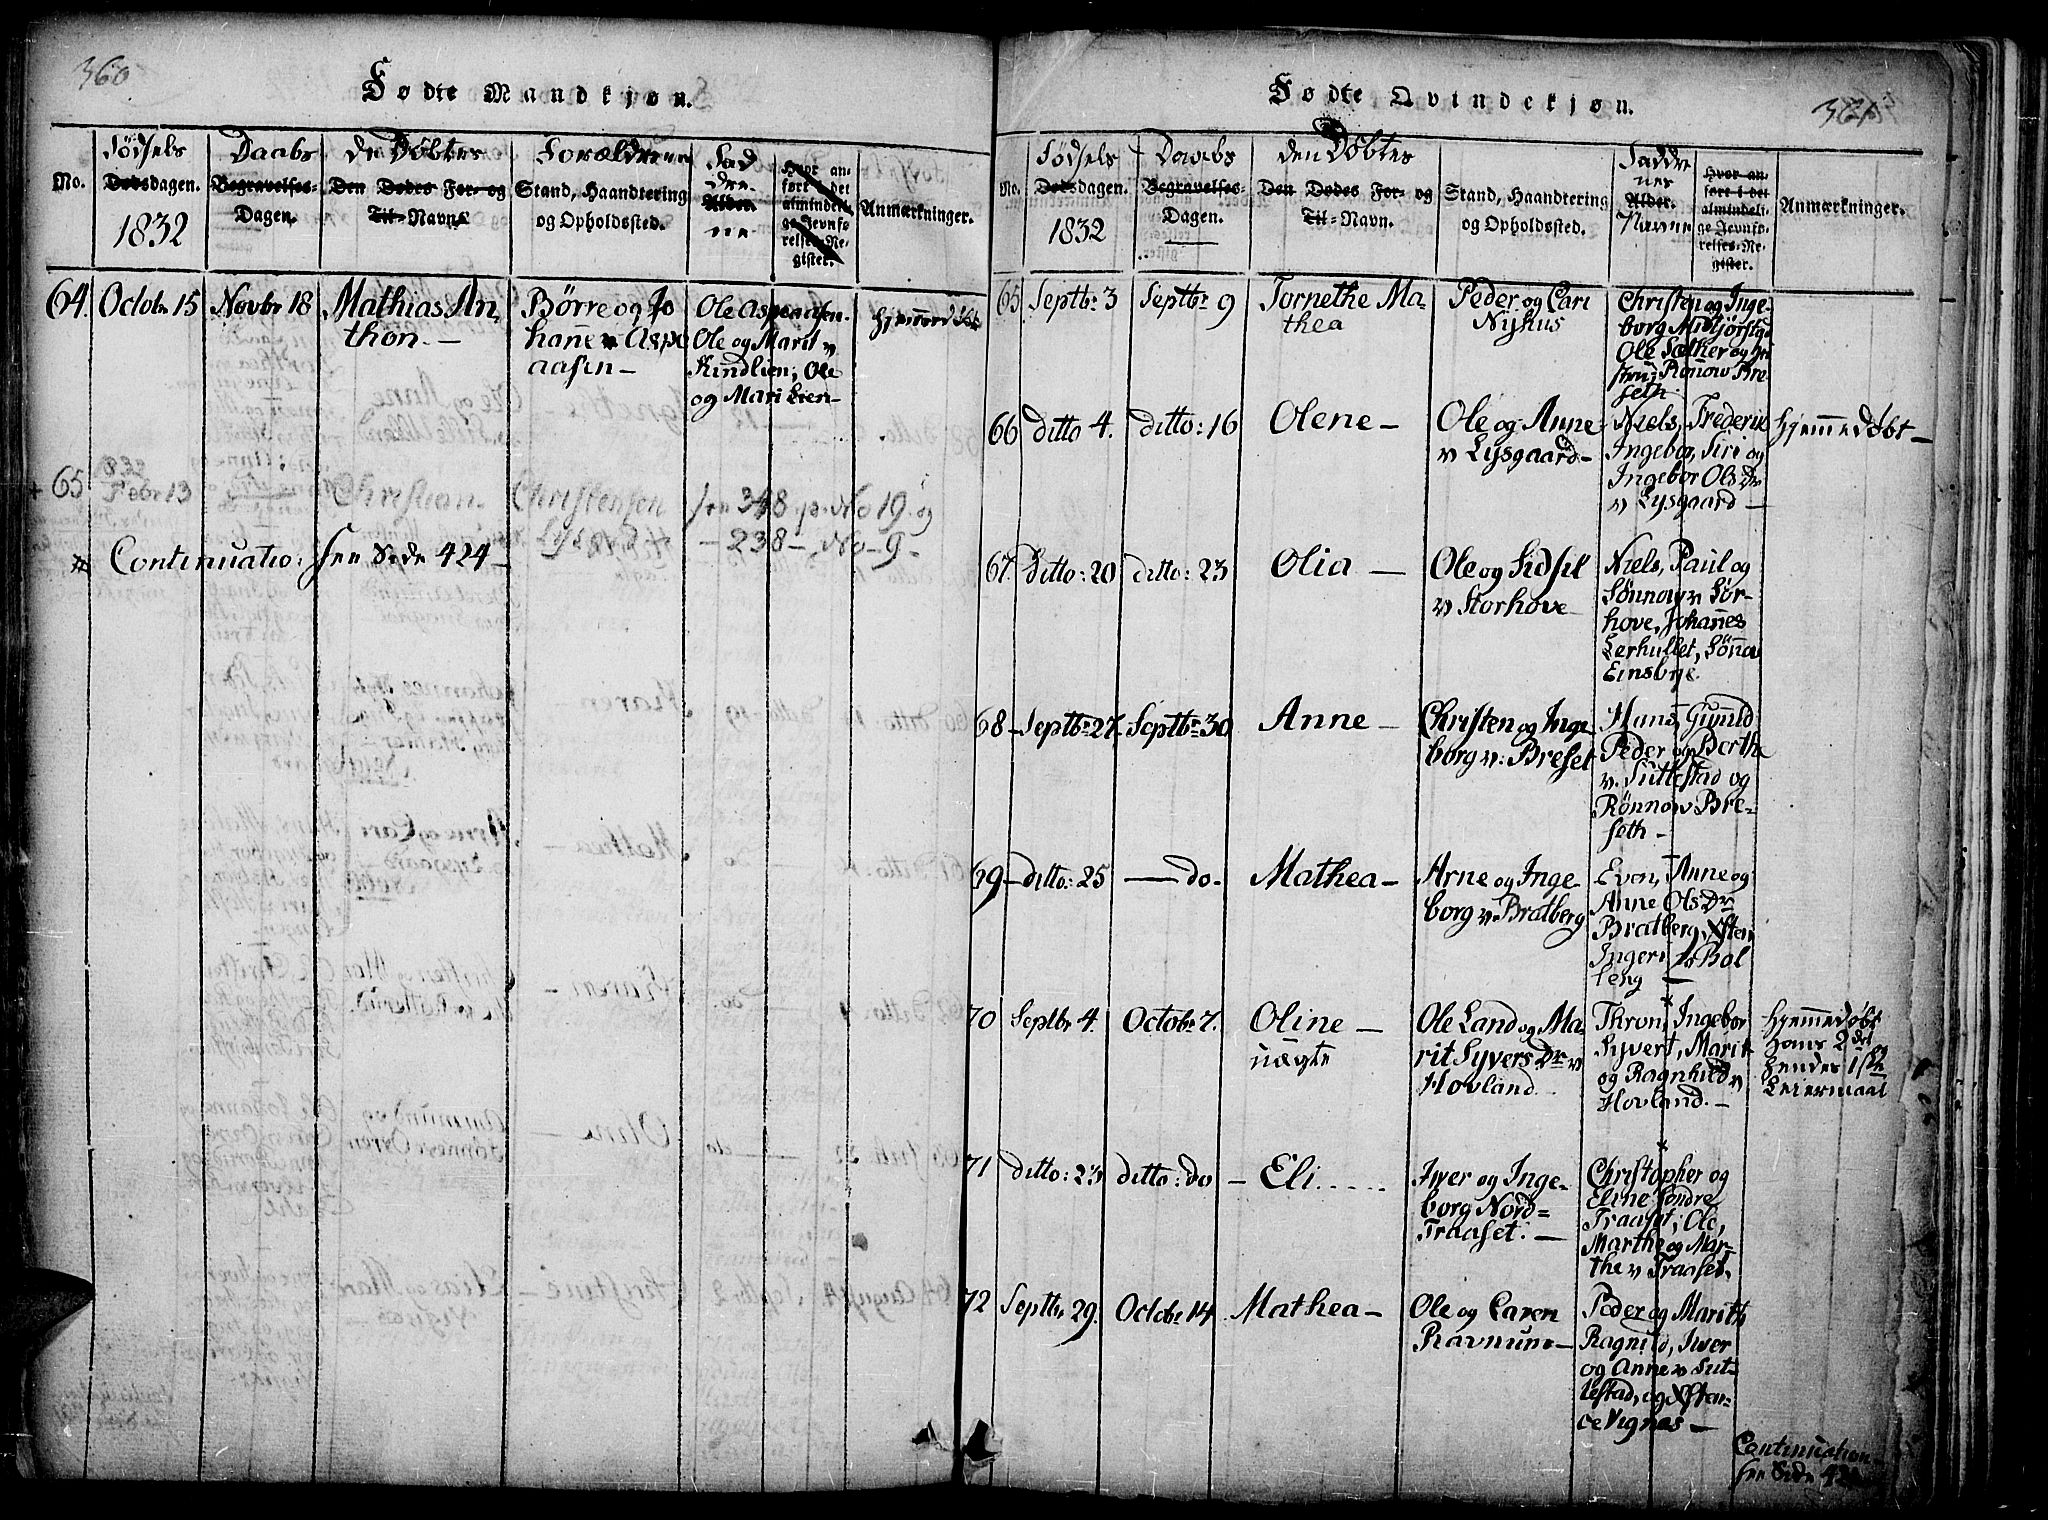 360
Fødte Mandkjøn.
No.
Fødsels
Dødsdagen.
1832
Daabs
Begravelses-
Dagen.
De Døbtes
Den Dødes For- og
Til-Navne
Forældrenes
Stand, Haandtering
og Opholdssted.
Fad
dre
Alder
Hvor an-
ført i det
almindeli-
ge Jevnfø-
relses-Re-
gister.
Anmærkninger.
64. Octobr 15 Novbr 18 Mathias An-
thon. —
Børre og Jo
hanne v Aspe
aasen —
Ole Aspeaasen.
Ole og Marit v
Kindlien, Ole
og Mari Lien —
Hjemmedøbt
+ 65 1832
Febr 13 Christian. Christensen
Lysgaard
see 348 p. No 19. og
— 238 — No — 9 —
Continuatio: see Side 424 —
361
Fødte Qvindekjøn.
No.
Fødsels
Dødsdagen.
1832
Daabs
Begravelses-
Dagen.
den Døbtes
Den Dødes For- og
Til-Navn.
Stand, Haandtering
og Opholdssted.
Faddre
nes
Alder.
Navne
Hvor an-
ført i det
almindeli-
ge Jevnfø-
relses-Re-
gister.
Anmærkninger.
65 Septbr 3 Septbr 9 Tornethe Ma-
thea
Peder og Cari
Nyhus
Christen og Inge-
borg Midtjørstad
Ole Sæther og
Rønnow Bre-
seth.
66 ditto 4. ditto: 16 Olene —
Ole og Anne
v Lysgaard —
Niels, Frederik
Ingebor, Siri og
Ingebor Ols Dr
v Lysgaard —
Hjemmedøbt —
67. Ditto: 20 ditto: 23 Olia —
Ole og Sidsil
v Storhove —
Niels, Paul og
Sønnow v Sør-
hove, Johannes
Lerhullet, Sønow
Einsbye.
68 — Septbr 27. Septbr 30 Anne —
Christen og Inge
borg v: Breset
Hans, Gunild
Peder og Berthe
v. Suttestad og
Rønnow Bre-
seth —
69 — ditto: 25 — do. Mathea —
Arne og Inge-
borg v. Bratberg
Even, Anne og
Anne Ols Dr
Bratberg, Xsten
Ingeri
v Bøl
leng —
70 Septbr 4. Octobr 7. Oline —
uægte
Ole Land og Ma-
rit Syvers Dr v
Hovland
Thron, Ingebor
Syvert, Marit
og Ragnhild v
Hovland. —
Hjemmedøbt
Hans 2det
hendes 1ste
Leiermaal
71 ditto: 23 ditto: do — Eli. . . . .
Iwer og Inge-
borg Nord=
Traaset. —
Christopher og
Eline Søndre
Traaset; Ole,
Marthe og Mar-
the v Traaset.
72 Septbr 29. Octobr 14. Mathea —
Ole og Caren
Ravnum —
Peder og Marith
Ragnild, Iwer
og Anne v Sut-
testad, og Xsten-
ce Vignes —
Continuation
see Side 42